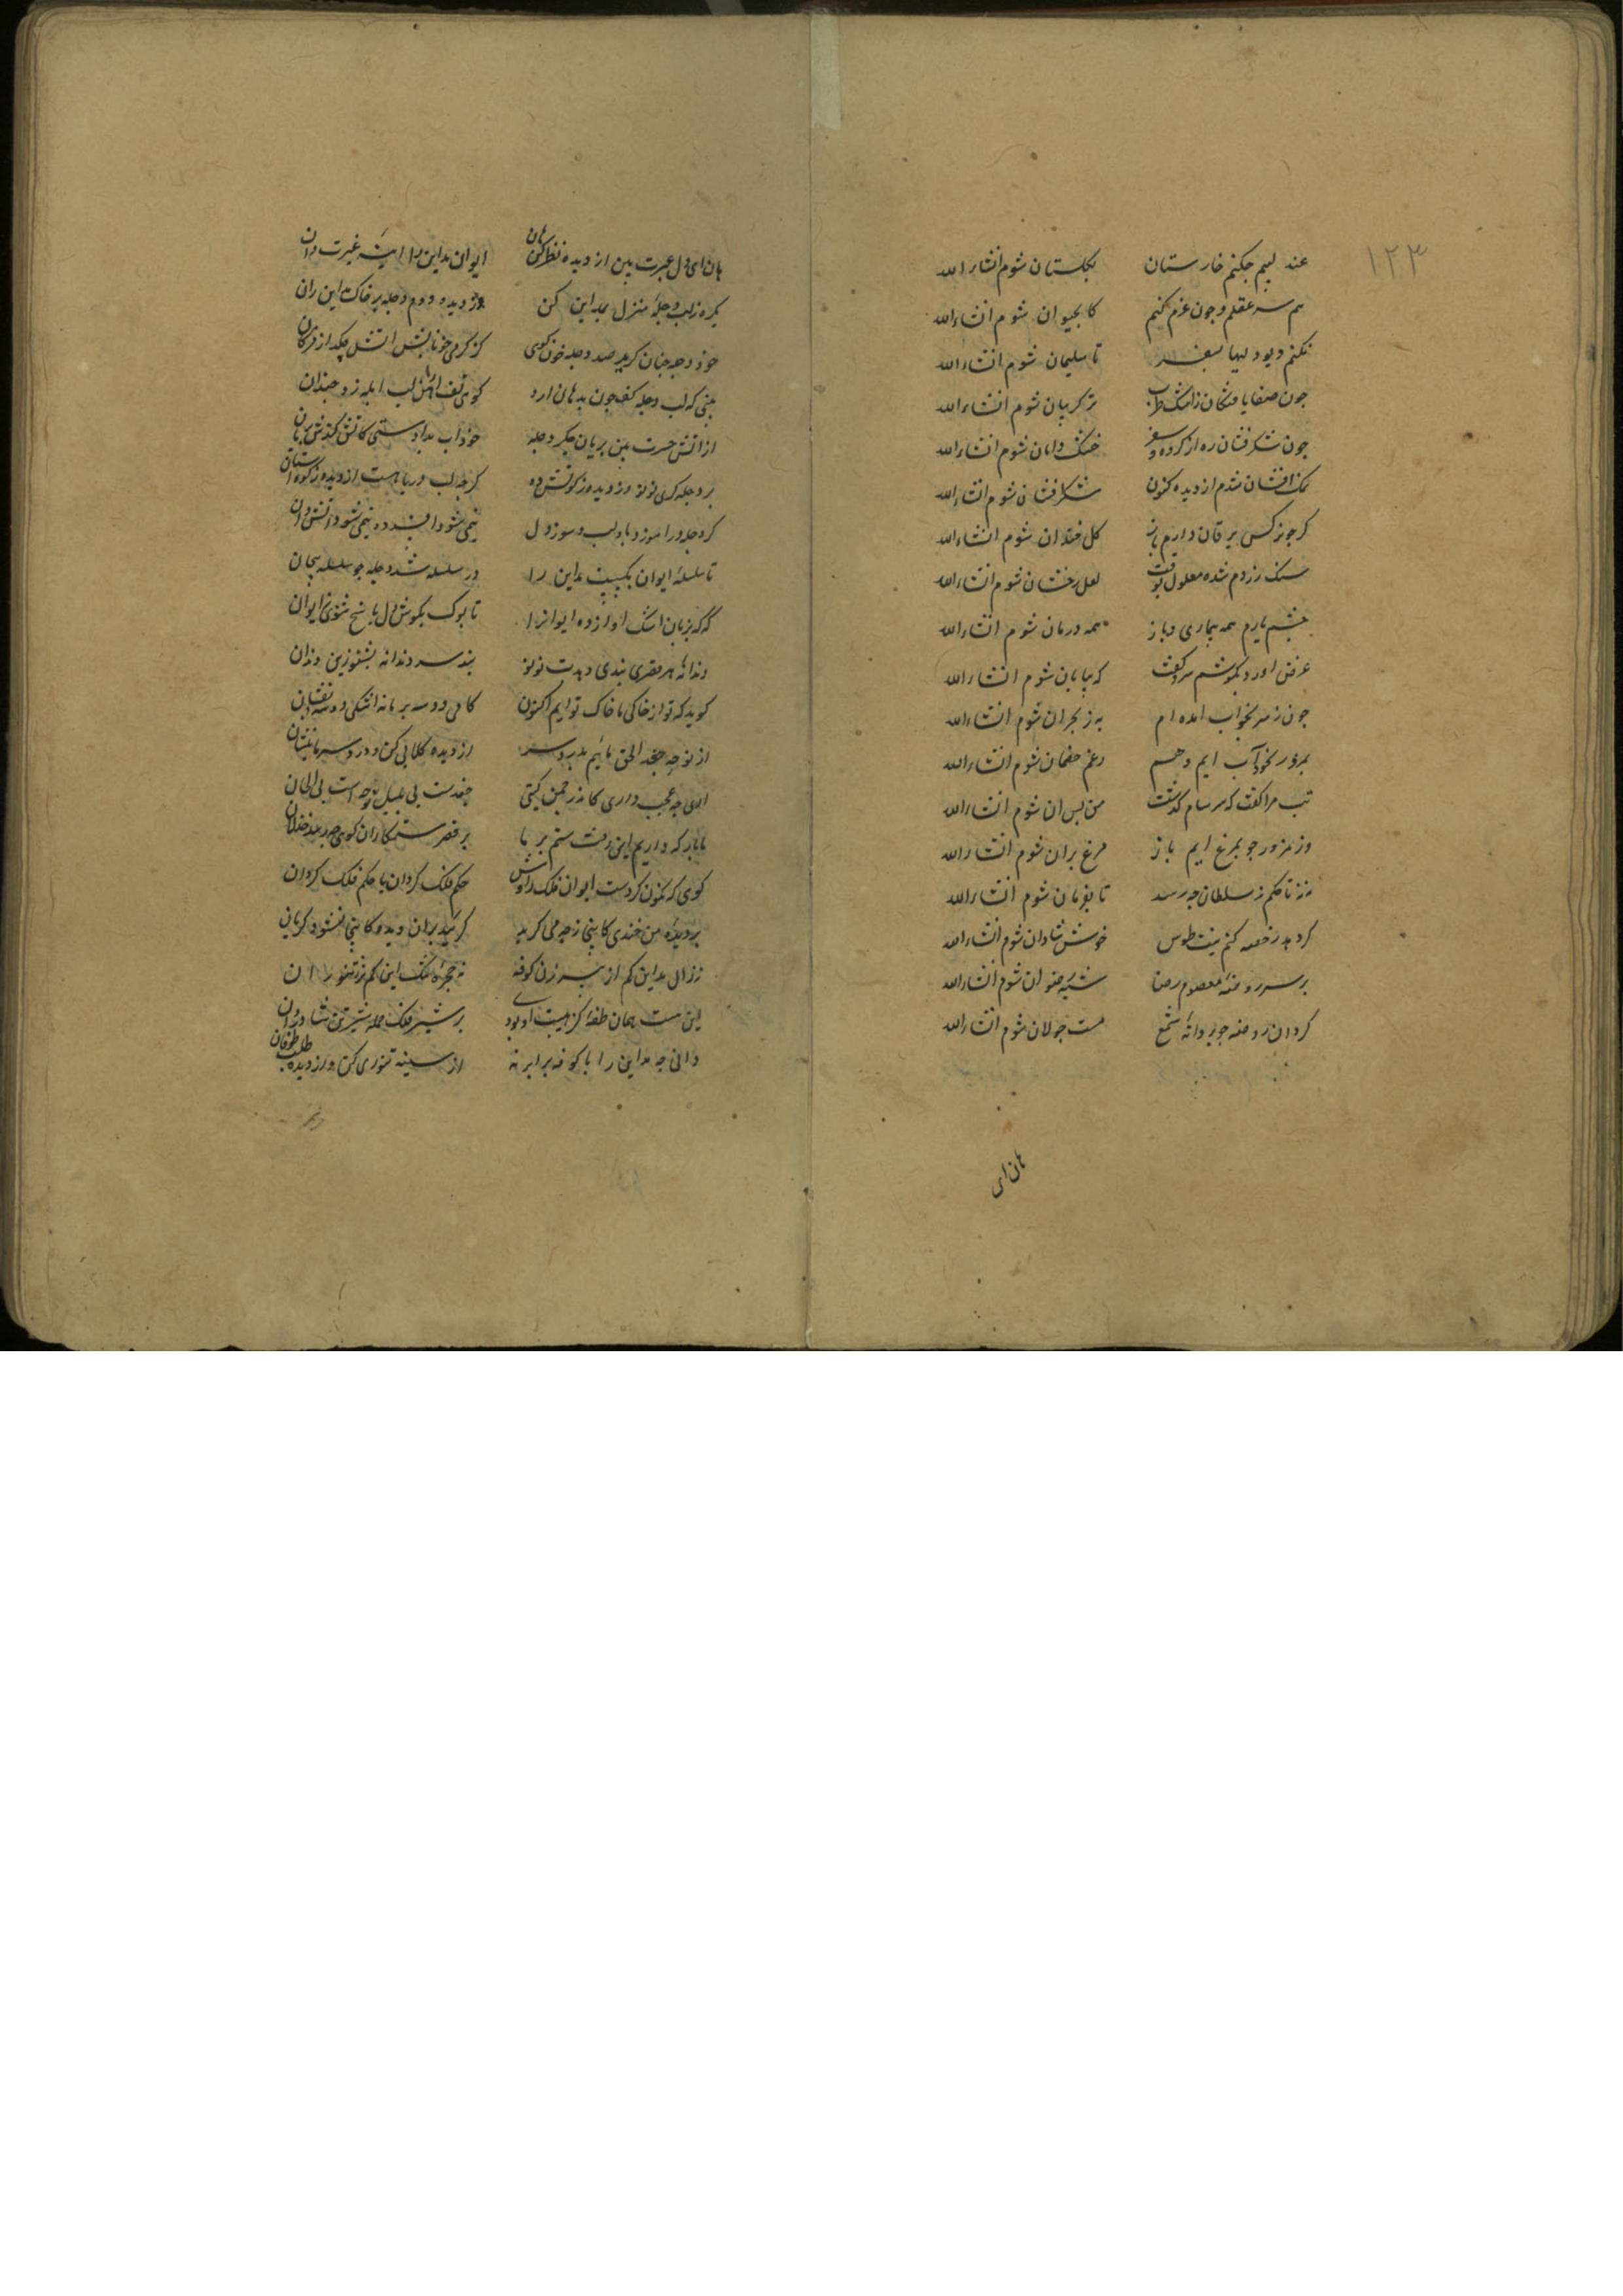 ۱۲۳
عندلیبم چکنم خارستان بگلستان شوم انشاءالله
هم سر عقلم و چون عزم کنم کابحیوان شوم انشاءالله
نکنم دیو دلیها بسفر تا سلیمان شوم انشاءالله
طرب شوم انشاءالله
چون شکرفشان ره از سفر خنک دامان شوم انشاءالله
نمک افشان شدم از دیده کنون شکرافشان شوم انشاءالله
کر چو نرکس یرقان دارم باز کل خندان شوم انشاءالله
سنک زردم شده معلول بوقت لعل رخشان شوم انشاءالله
بیماری و باز همه درمان شوم انشاءالله
عرق اورد بکوشم سر وکفت که بپایان شوم انشاءالله
چون ز سر بخواب امده ام به ز بحران شوم انشاءالله
بمزور بخود آب ایم وهم رغم خصمان شوم انشاءالله
تب مرا کفت که سرسام کدشت من بس ان شوم انشاءالله
وز مزور چو بمرغ ایم باز مرغ بران شوم انشاءالله
نه نه تا حکم ز سلطان چه رسد تا بفرمان شوم انشاءالله
کر دهد رخصه کنم نیت طوس خوش شادان شوم انشاءالله
بر سر روضه معصوم رضا شبه رضوان شوم انشاءالله
کرد ان روضه چو پروانه شمع مست جولان شوم انشاءالله
هان ای
هان ای دل عبرت بین از دیده نظر کن هان ایوان مداین را اینه عبرت دان
یکره ز لب دجله منزل بمداین کن وز دیده دوم دجله بر خاک مداین ران
خود دجله چنان کرید صد دجله خون کوی کز کرمی خونابش اتش چکد از مژکان
بینی که لب دجله کف چون بدهان ارد کوی ز تف اهش لب ابله زد چندان
از اتش حسرت بین بریان جکر دجله خود اب شنیدستی کاتش کندش بریان
بر دجله کری نونو وز دیده زکوتش ده کرچه لب دریا هست از دجله زکوه استان
کر دجله درامیزد باد لب و سوز دل نیمی شود افسرده نیمی شود اتشدان
تا سلسله ایوان بکسست مداین را در سلسله شد دجله چو سلسله پیچان
که که بزبان اشک اواز ده ایوان را تا بوک بکوش دل پاسخ شنوی ز ایوان
دندانه هر قصری پندی دهدت نونو پند سر دندانه بشنو ز بن دندان
کوید که تو از خاکی ما خاک توایم اکنون کامی دو سه بر ما نه اشکی دو سه بفشان
از نوحه جغد الحق مائیم بدرد سر از دیده کلابی کن درد سر ما بنشان
اری چه عجب داری کاندر چمن کیتی جغدست پی بلبل نوحه است پی الحان
ما بارکه دادیم این رفت ستم بر ما بر قصر ستمکاران کوی چه رسد خذلان
کوی که نکون کردست ایوان فلک وش را حکم فلک کردان یا حکم فلک کردان
بر دیده من خندی کاینجا ز چه می کرید کریند بران دیده کاینجا نشود کریان
نه زال مداین کم از پیرزن کوفه نه حجره تنک این کمتر ز تنور ان
این هست همان صفه کز هیبت او بودی بر شیر فلک حمله شیر تن شادروان
دانی چه مداین را با کوفه برابر نه از سینه تنوری کن وز دیده طلب طوفان